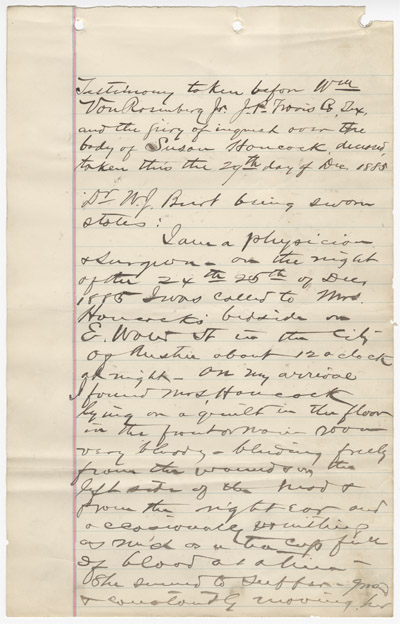 Testimony taken before Wm
Von Rosenberg Jr J.P. Travis Co Tex,
and the jury of inquest over the
body of Susan Hancock, deceased,
taken this the 29th day of Dec. 1885
Dr W.J. Burt being sworn
states:
I am a physician
& surgeon - on the night
of the 24th 25th of Dec
1885 I was called to Mrs.
Hancock's bedside on
E. Water St in the City
of Austin about 12 o'clock
at night - On my arrival
I found Mrs Hancock
lying on a quilt in the floor
in the front room
very bloody - bleeding freely
from the wound on the
left side of the head &
from the right Ear and
occasionally vomiting
as much as a tea cup full
of blood at a time -
She seemed to suffer
& constantly moving her